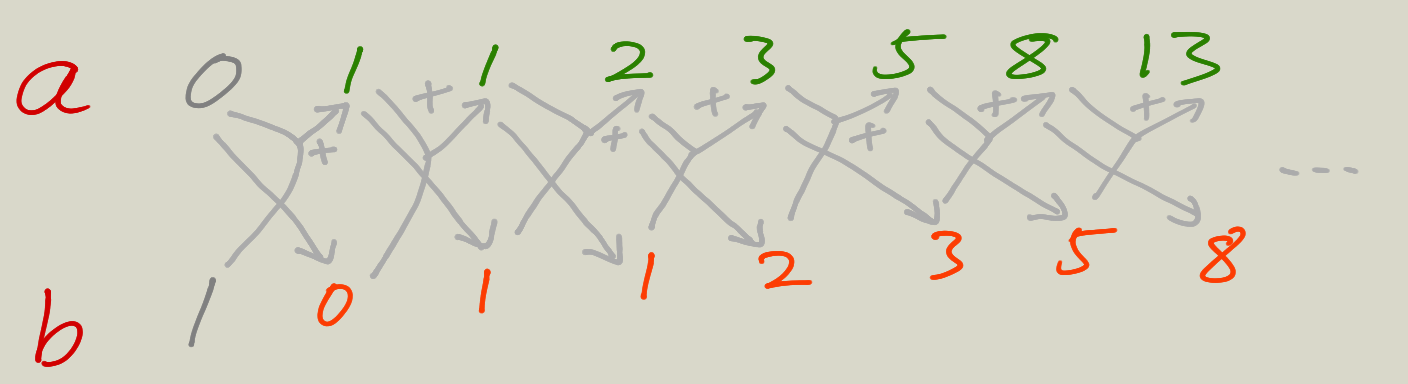 a 0 1 1 2 3 5 8 13
+ + + + + + +
- - - -
b 1 0 1 1 2 3 5 8